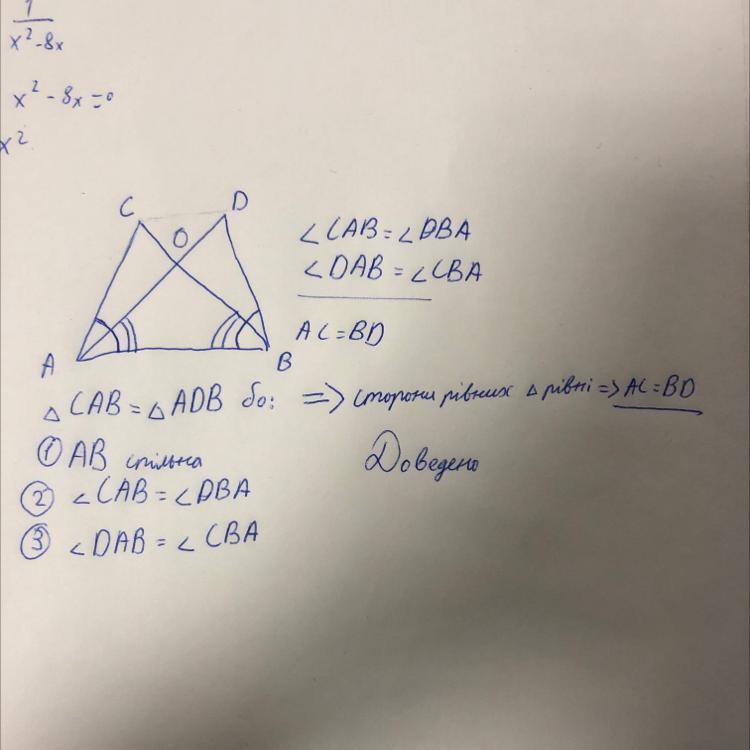 1
x² - 8x
x² - 8x = 0
x²
C
D
O
A
B
∠CAB = ∠DBA
∠DAB = ∠CBA
AC = BD
△CAB = △ADB бо: => сторони рівних △ рівні => AC = BD
① AB спільна
Доведено
② ∠CAB = ∠DBA
③ ∠DAB = ∠CBA